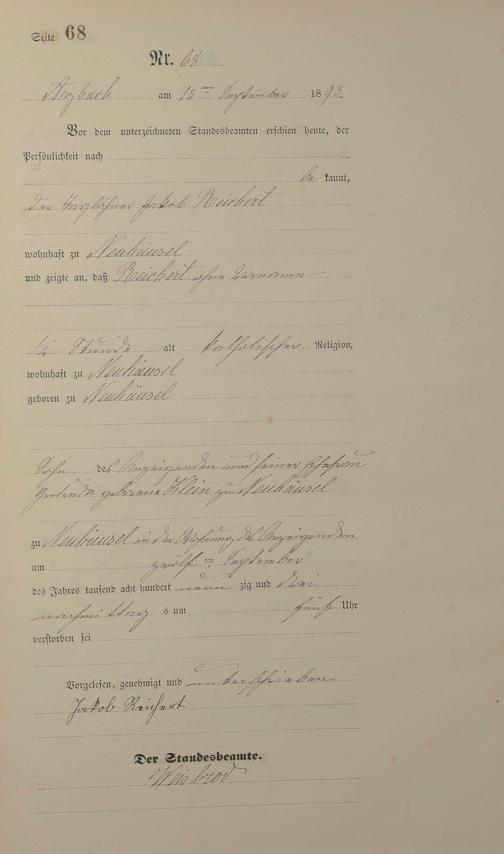 Seite 68
Nr. 68
Arzbach am 13ten September 1893.
Vor dem unterzeichneten Standesbeamten erschien heute, der
Persönlichkeit nach
be kannt,
der Taglöhner Jakob Reichert
wohnhaft zu Neuhäusel
und zeigte an, daß Reichert ohne Vornamen
1/2 Stunde alt katholischer Religion,
wohnhaft zu Neuhäusel
geboren zu Neuhäusel
Sohn des Anzeigenden und seiner Ehefrau
geborene Klein zu Neuhäusel
zu Neuhäusel in der Wohnung des Anzeigenden
am zwölften September
des Jahres tausend acht hundert neun zig und drei
nachmittag s um fünf Uhr
verstorben sei
Vorgelesen, genehmigt und unterschrieben
Jakob Reichert
Der Standesbeamte.
Weisbrod